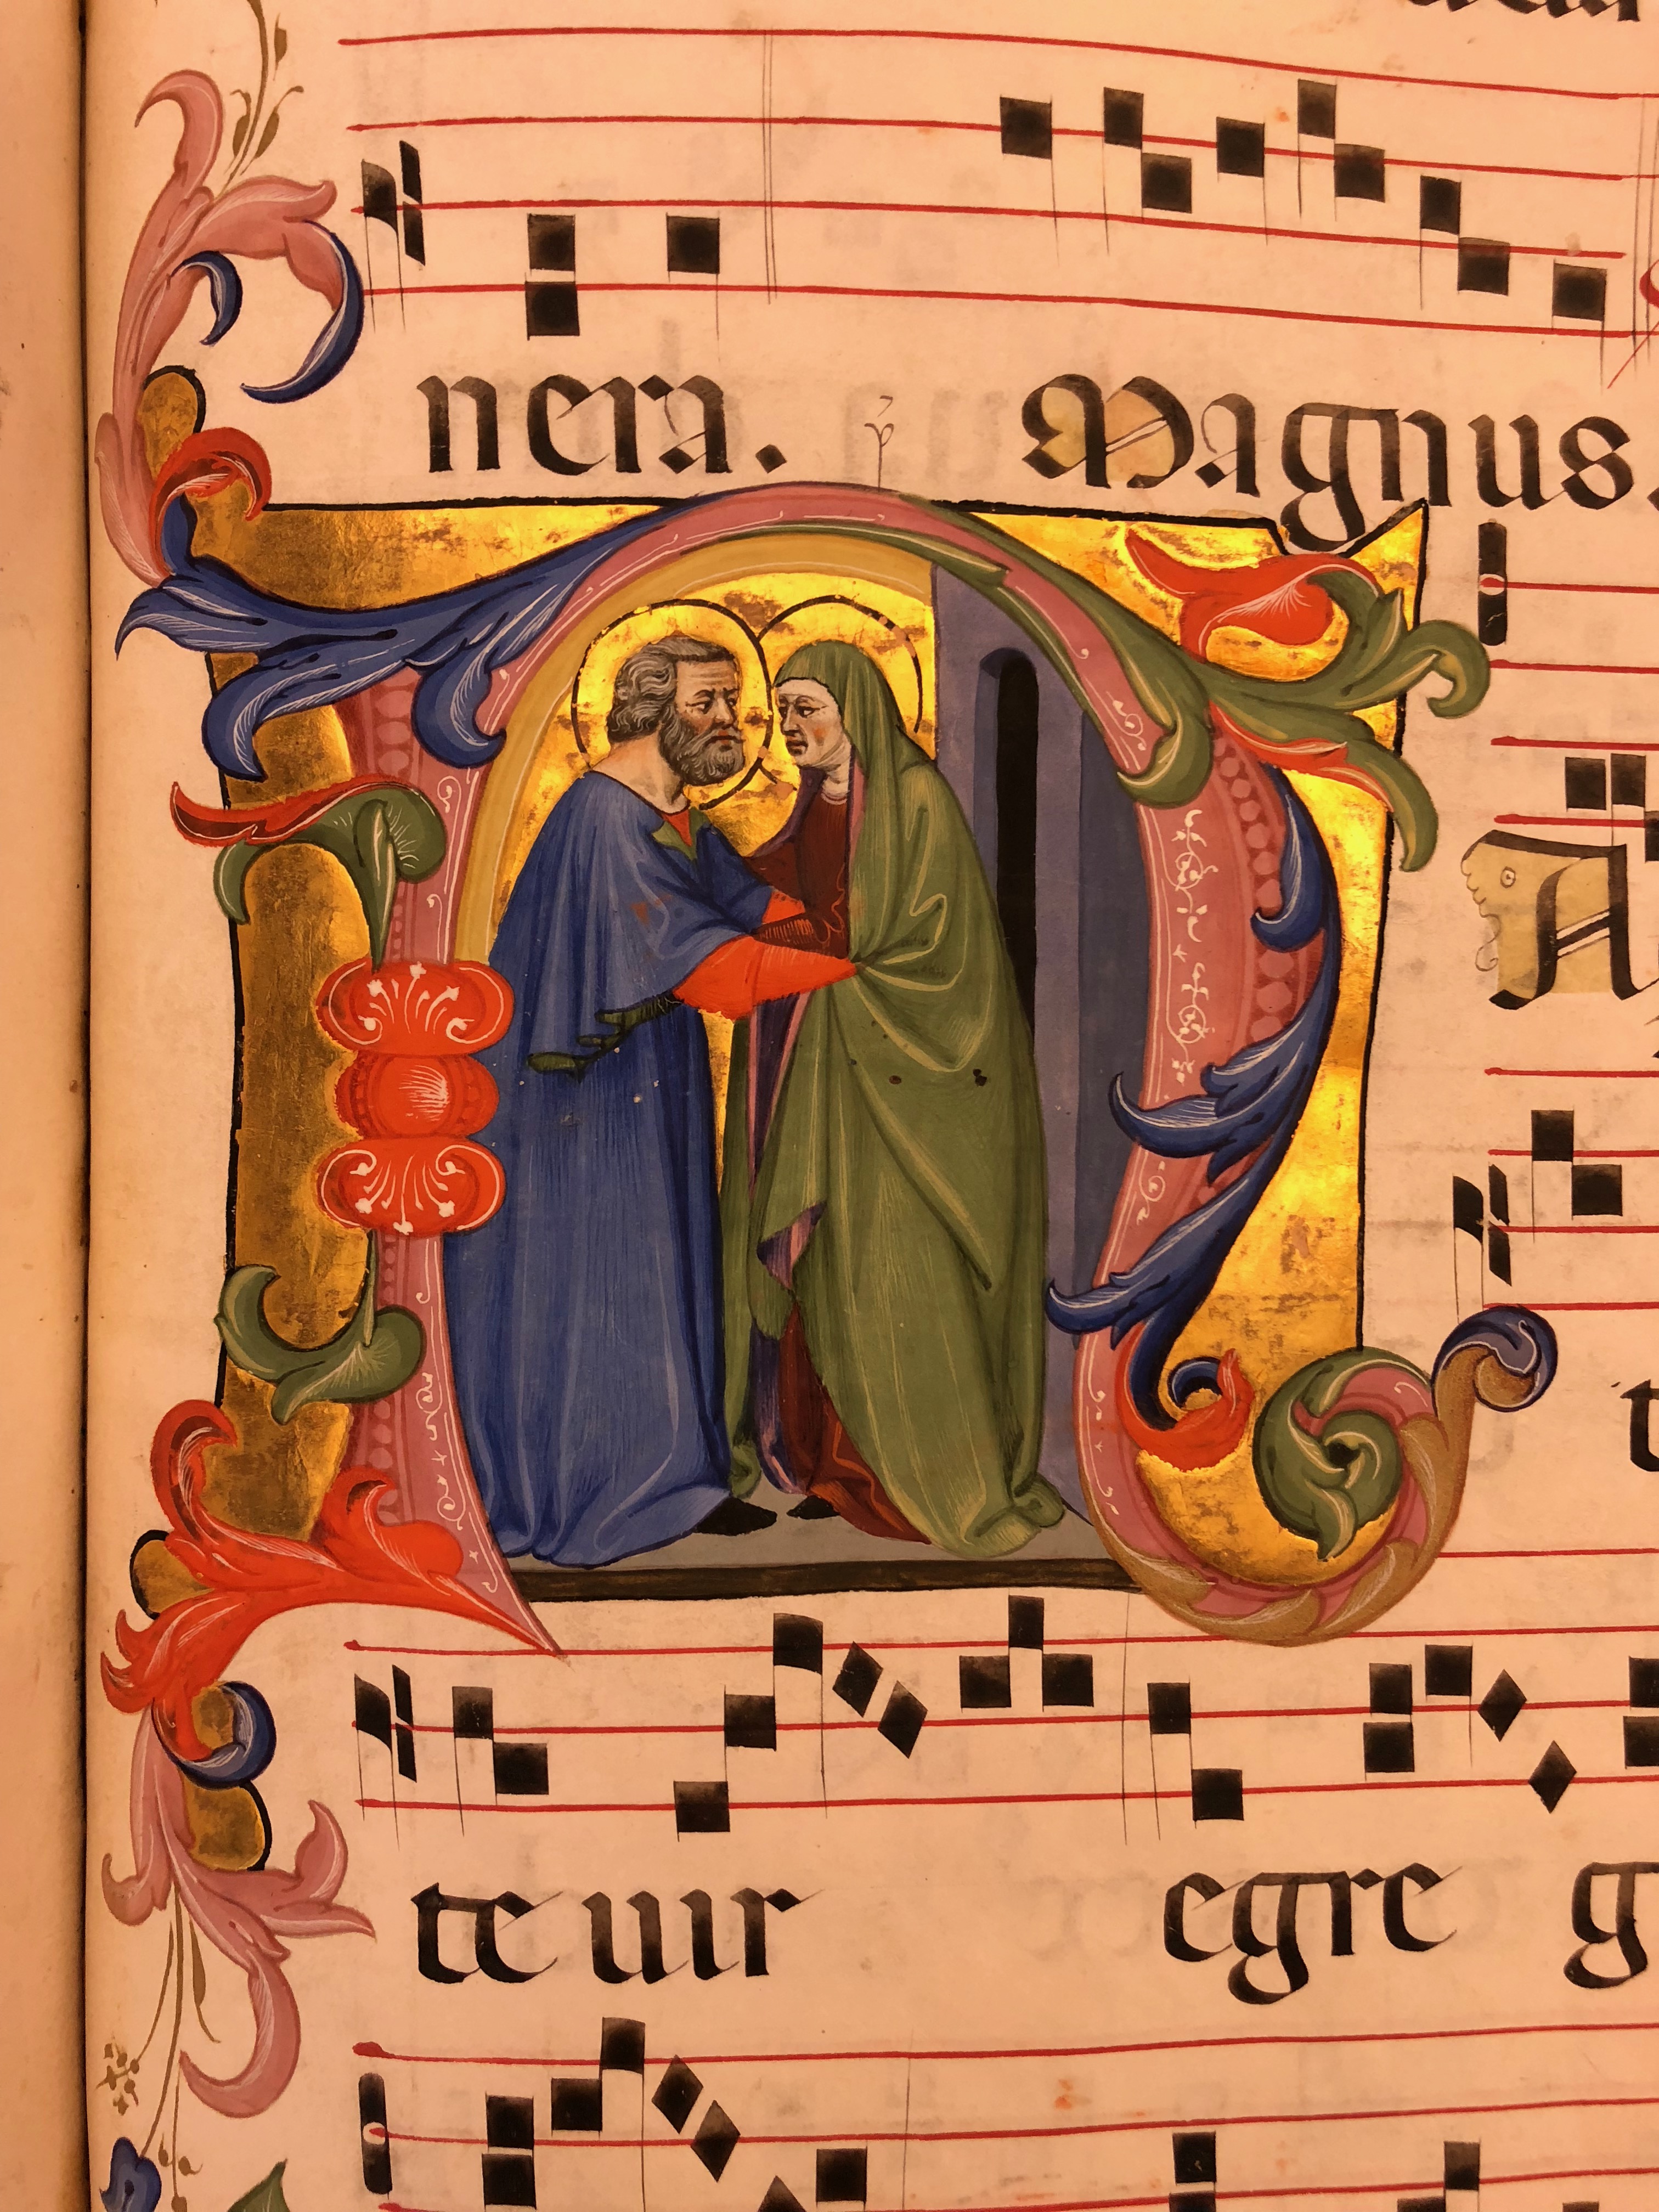 nera. Magnus.
A
t
te uir egre g